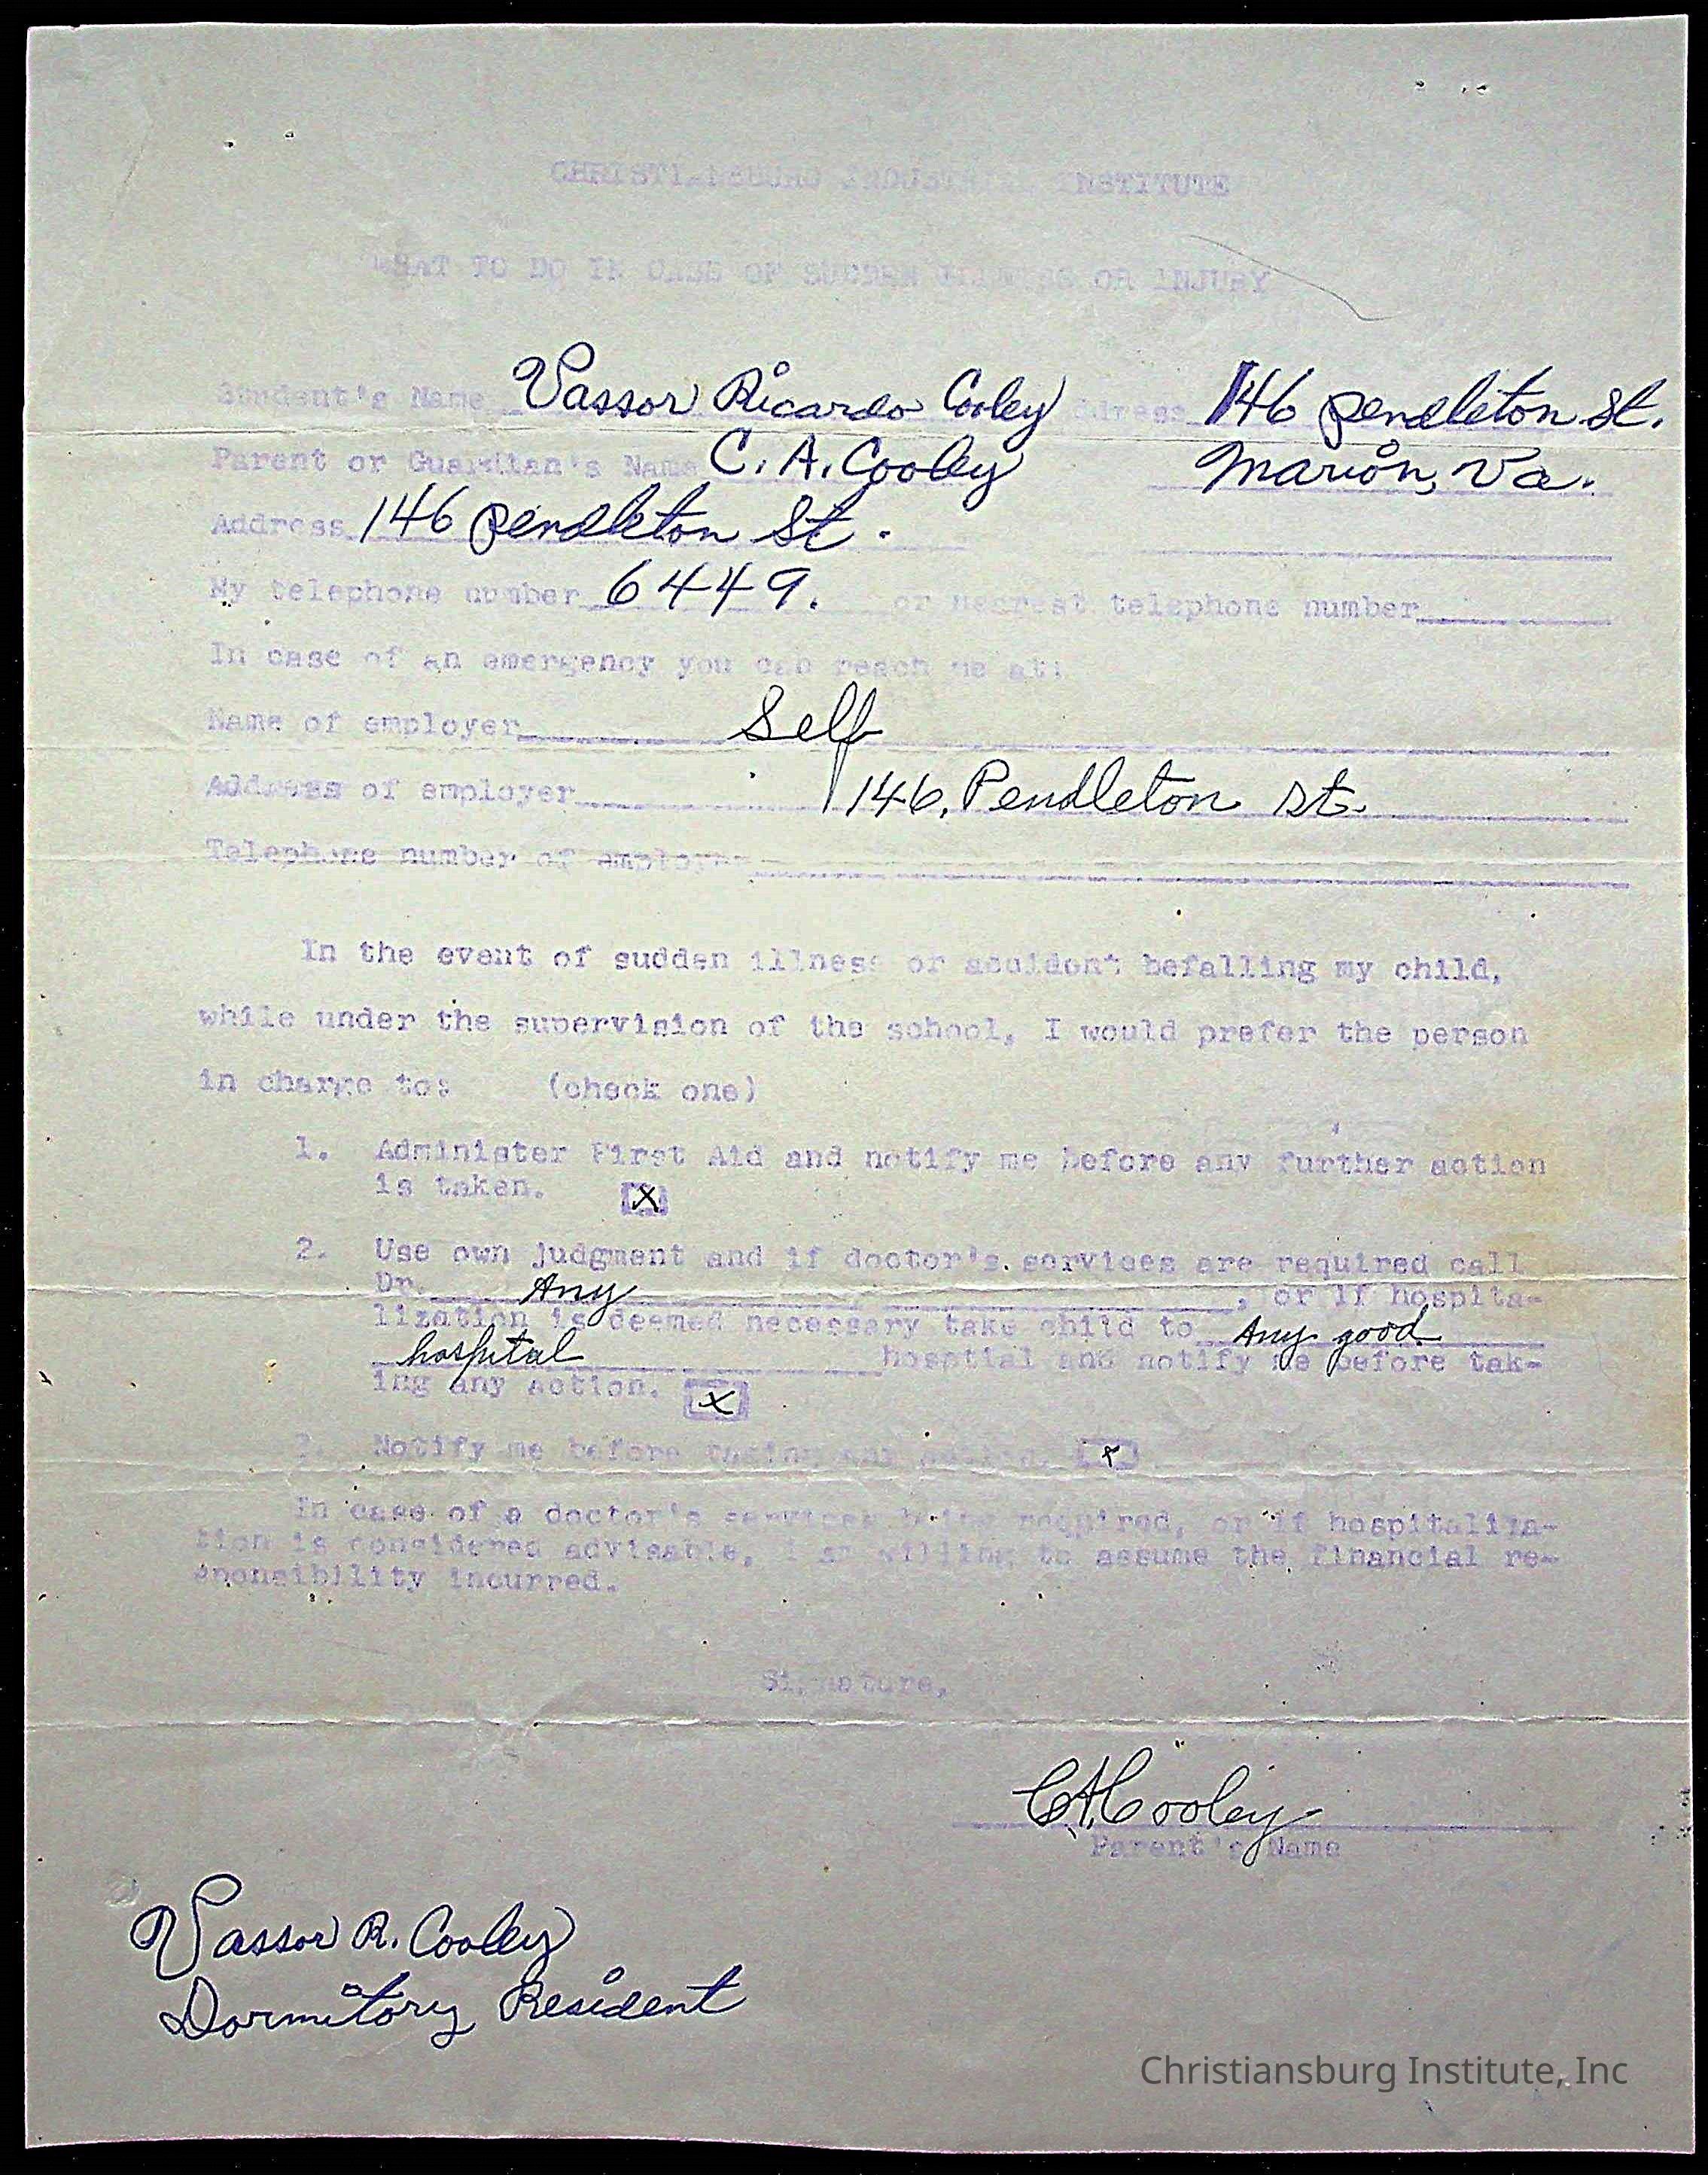 CHRISTIANSBURG INDUSTRIAL INSTITUTE
WHAT TO DO IN CASE OF SUDDEN ILLNESS OR INJURY
Student's Name Vassor Ricardo Cooley Address 146 pendleton St.
Parent or Guardian's Name C. A. Cooley Marion, Va.
Address 146 pendleton St.
My telephone number 6449. or nearest telephone number
In case of an emergency you can reach me at:
Name of employer Self
Address of employer 146, Pendleton St.
Telephone number of employer
In the event of sudden illness or accident befalling my child,
while under the supervision of the school, I would prefer the person
in charge to: (check one)
1. Administer First Aid and notify me before any further action
is taken. X
2. Use own judgment and if doctor's services are required call
Dr. Any , or if hospita-
lization is deemed necessary take child to Any good
hospital hosptial and notify me before tak-
ing any action. X
3. Notify me before taking any action. X
In case of a doctor's services being required, or if hospitaliza-
tion is considered advisable, I am willing to assume the financial re-
sponsibility incurred.
Signature,
C A Cooley
Parent's Name
Vassor R. Cooley
Dormitory Resident
Christiansburg Institute, Inc